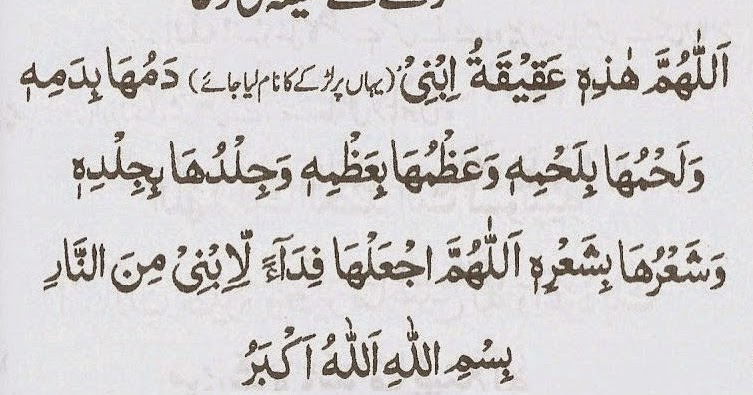 اَللّٰهُمَّ هٰذِهٖ عَقِيْقَةُ اِبْنِيْ (یہاں پر لڑکے کا نام لیا جائے) دَمُهَا بِدَمِهٖ
وَلَحْمُهَا بِلَحْمِهٖ وَعَظْمُهَا بِعَظْمِهٖ وَجِلْدُهَا بِجِلْدِهٖ
وَشَعْرُهَا بِشَعْرِهٖ اَللّٰهُمَّ اجْعَلْهَا فِدَآءً لِّاِبْنِيْ مِنَ النَّارِ
بِسْمِ اللهِ اَللهُ اَكْبَرُ